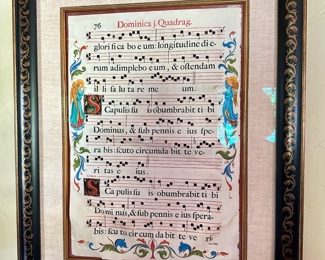 76 Dominica j. Quadrag.
glorifica bo e um: longitudine di e-
rum adimplebo e um, & ostendam
il li sa lu ta re me um.
Scapulis su is obumbrabit ti bi
Dominus, & sub pennis e ius spe-
ra bis: scuto circumda bit te ve-
ri tas e ius.
Scapulis su is obumbrabit ti bi
Domi nus, & sub pennis e ius spera-
bis: scuto cir cum da bit te ve